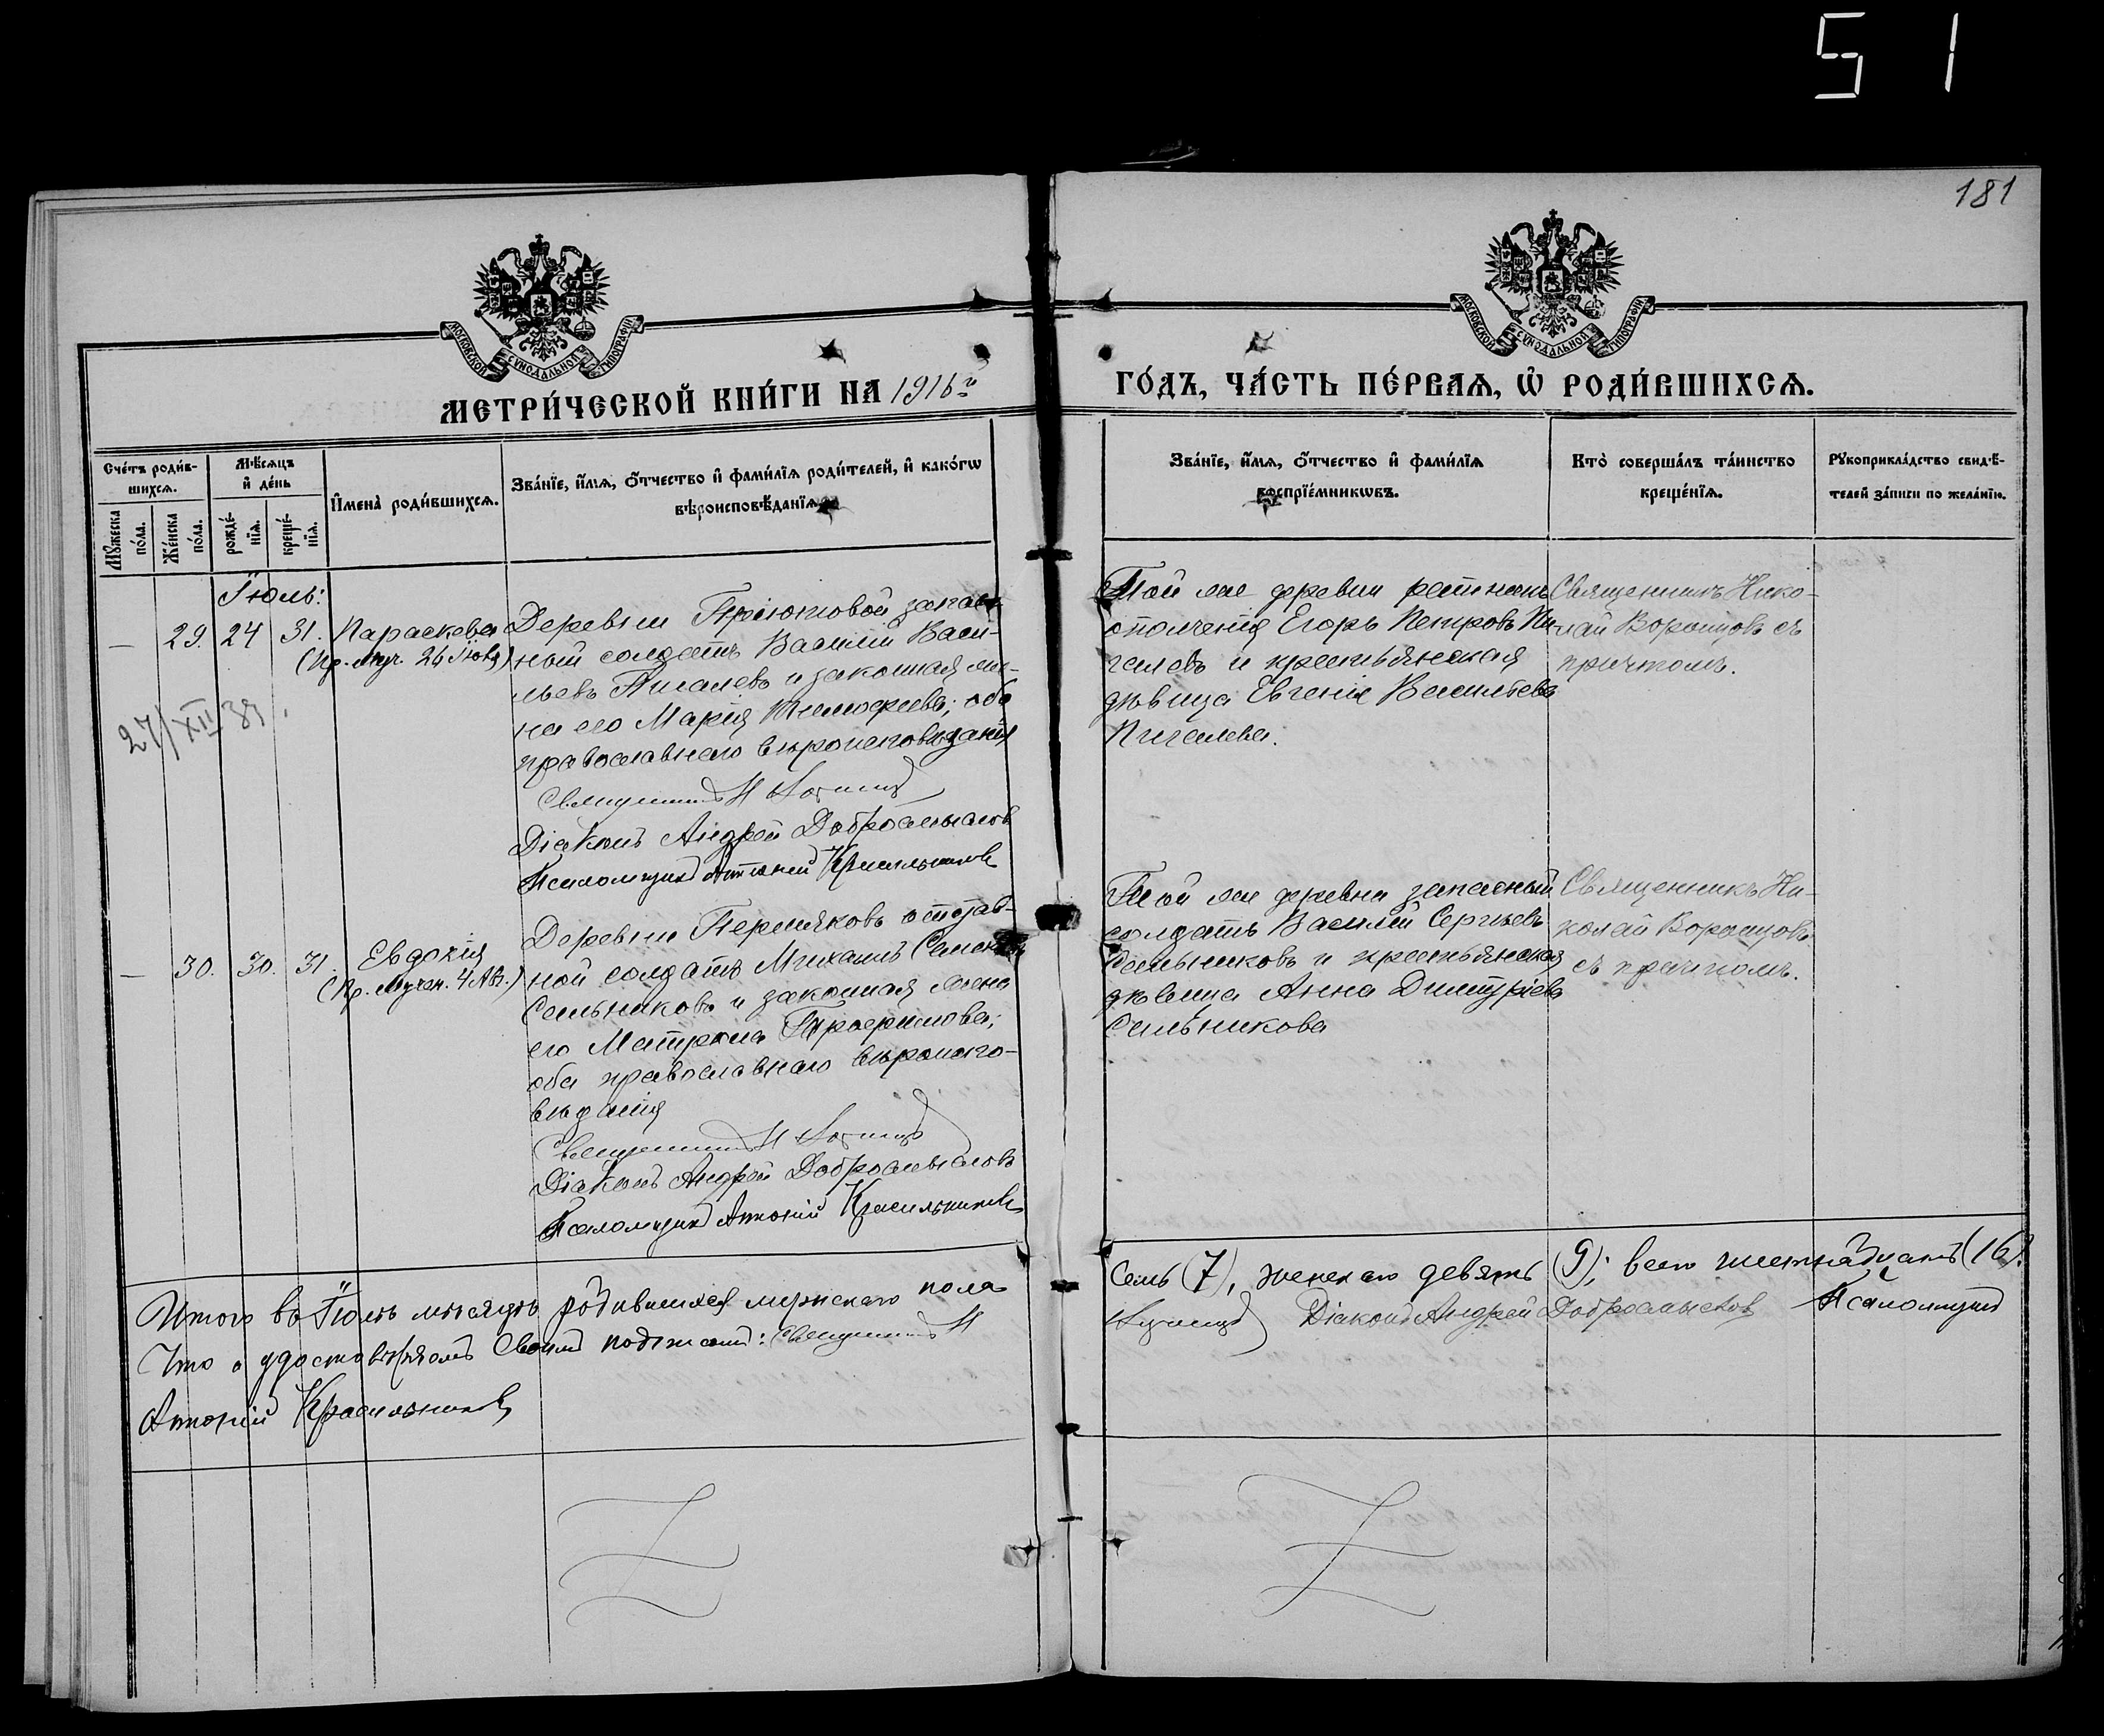 51
181
МОСКОВСКОЙ СѴНОДАЛЬНОЙ ТИПОГРАФІИ
МОСКОВСКОЙ СѴНОДАЛЬНОЙ ТИПОГРАФІИ
МЕТРИ́ЧЕСКОЙ КНИ́ГИ НА 1916 й
ГО́ДЪ, ЧА́СТЬ ПЕ́РВАѦ, Ѡ҆ РОДИ́ВШИХСѦ.
Сче́тъ роди́в-
шихсѧ.
Мꙋ́жеска по́ла.
Же́нска по́ла.
Мѣ́сѧцъ и҆ де́нь
рожде́-нїѧ.
креще́-нїѧ.
И҆мена̀ роди́вшихсѧ.
Зва́нїе, и҆́мѧ, ѻ҆́тчество и҆ фами́лїѧ роди́телей, и҆ како́гѡ
вѣроисповѣ́данїѧ.
Зва́нїе, и҆́мѧ, ѻ҆́тчество и҆ фами́лїѧ
воспрїе́мникѡвъ.
Кто̀ соверша́лъ та́инство
креще́нїѧ.
Рꙋкоприкла́дство свидѣ́-
телей за́писи по жела́нїю.
Іюль:
— 29. 24 31. Параскева
(Пр. муч. 26 Іюля)
27/XII 39.
Деревни запас-
ный солдатъ Василій Васи-
льевъ Пигалевъ и законная же-
на его Марія Тимофеева; оба
православнаго вѣроисповѣданія
Священникъ Н
Діаконъ Андрей Добросмысловъ
Псаломщикъ Антоній Красильниковъ
Той же деревни ратникъ
ополченія Егоръ Петровъ Пи-
галевъ и крестьянская
дѣвица Евгенія Васильева
Пигалева.
Священникъ Нико-
лай Воронцовъ съ
причтомъ.
— 30. 30. 31. Евдокія
(Пр. мучен. 4 Авг.)
Деревни Пермяковъ отстав-
ной солдатъ Михаилъ
Сальниковъ и законная жена
его Матрона Трофимова;
оба православнаго вѣроиспо-
вѣданія
Священникъ Н
Діаконъ Андрей Добросмысловъ
Псаломщикъ Антоній Красильниковъ
Той же деревни запасный
солдатъ Василій Сергѣевъ
Сальниковъ и крестьянская
дѣвица Анна Димитріева
Сальникова
Священникъ Ни-
колай Воронцовъ
съ причтомъ.
Итого въ Іюлѣ мѣсяцѣ родившихся мужскаго пола
семь (7), женскаго девять (9); всего шестнадцать (16).
Что и удостовѣряемъ своимъ подписомъ: Священникъ Н
Діаконъ Андрей Добросмысловъ Псаломщикъ
Антоній Красильниковъ